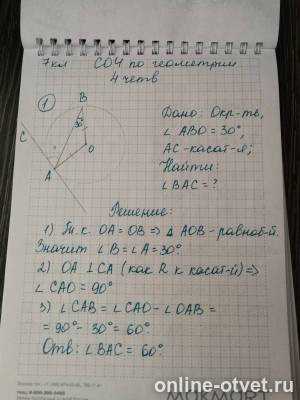 7 кл СОЧ по геометрии
4 четв
1
B
30°
C
O
A
Дано: Окр-ть,
∠ABO = 30°,
AC - касат-я;
Найти:
∠BAC = ?
Решение:
1) Т.к. OA = OB ⇒ △ AOB - равноб-й.
Значит ∠B = ∠A = 30°.
2) OA ⊥ CA (как R к касат-й) ⇒
∠CAO = 90°
3) ∠CAB = ∠CAO - ∠OAB =
= 90° - 30° = 60°.
Отв: ∠BAC = 60°.
online-otvet.ru